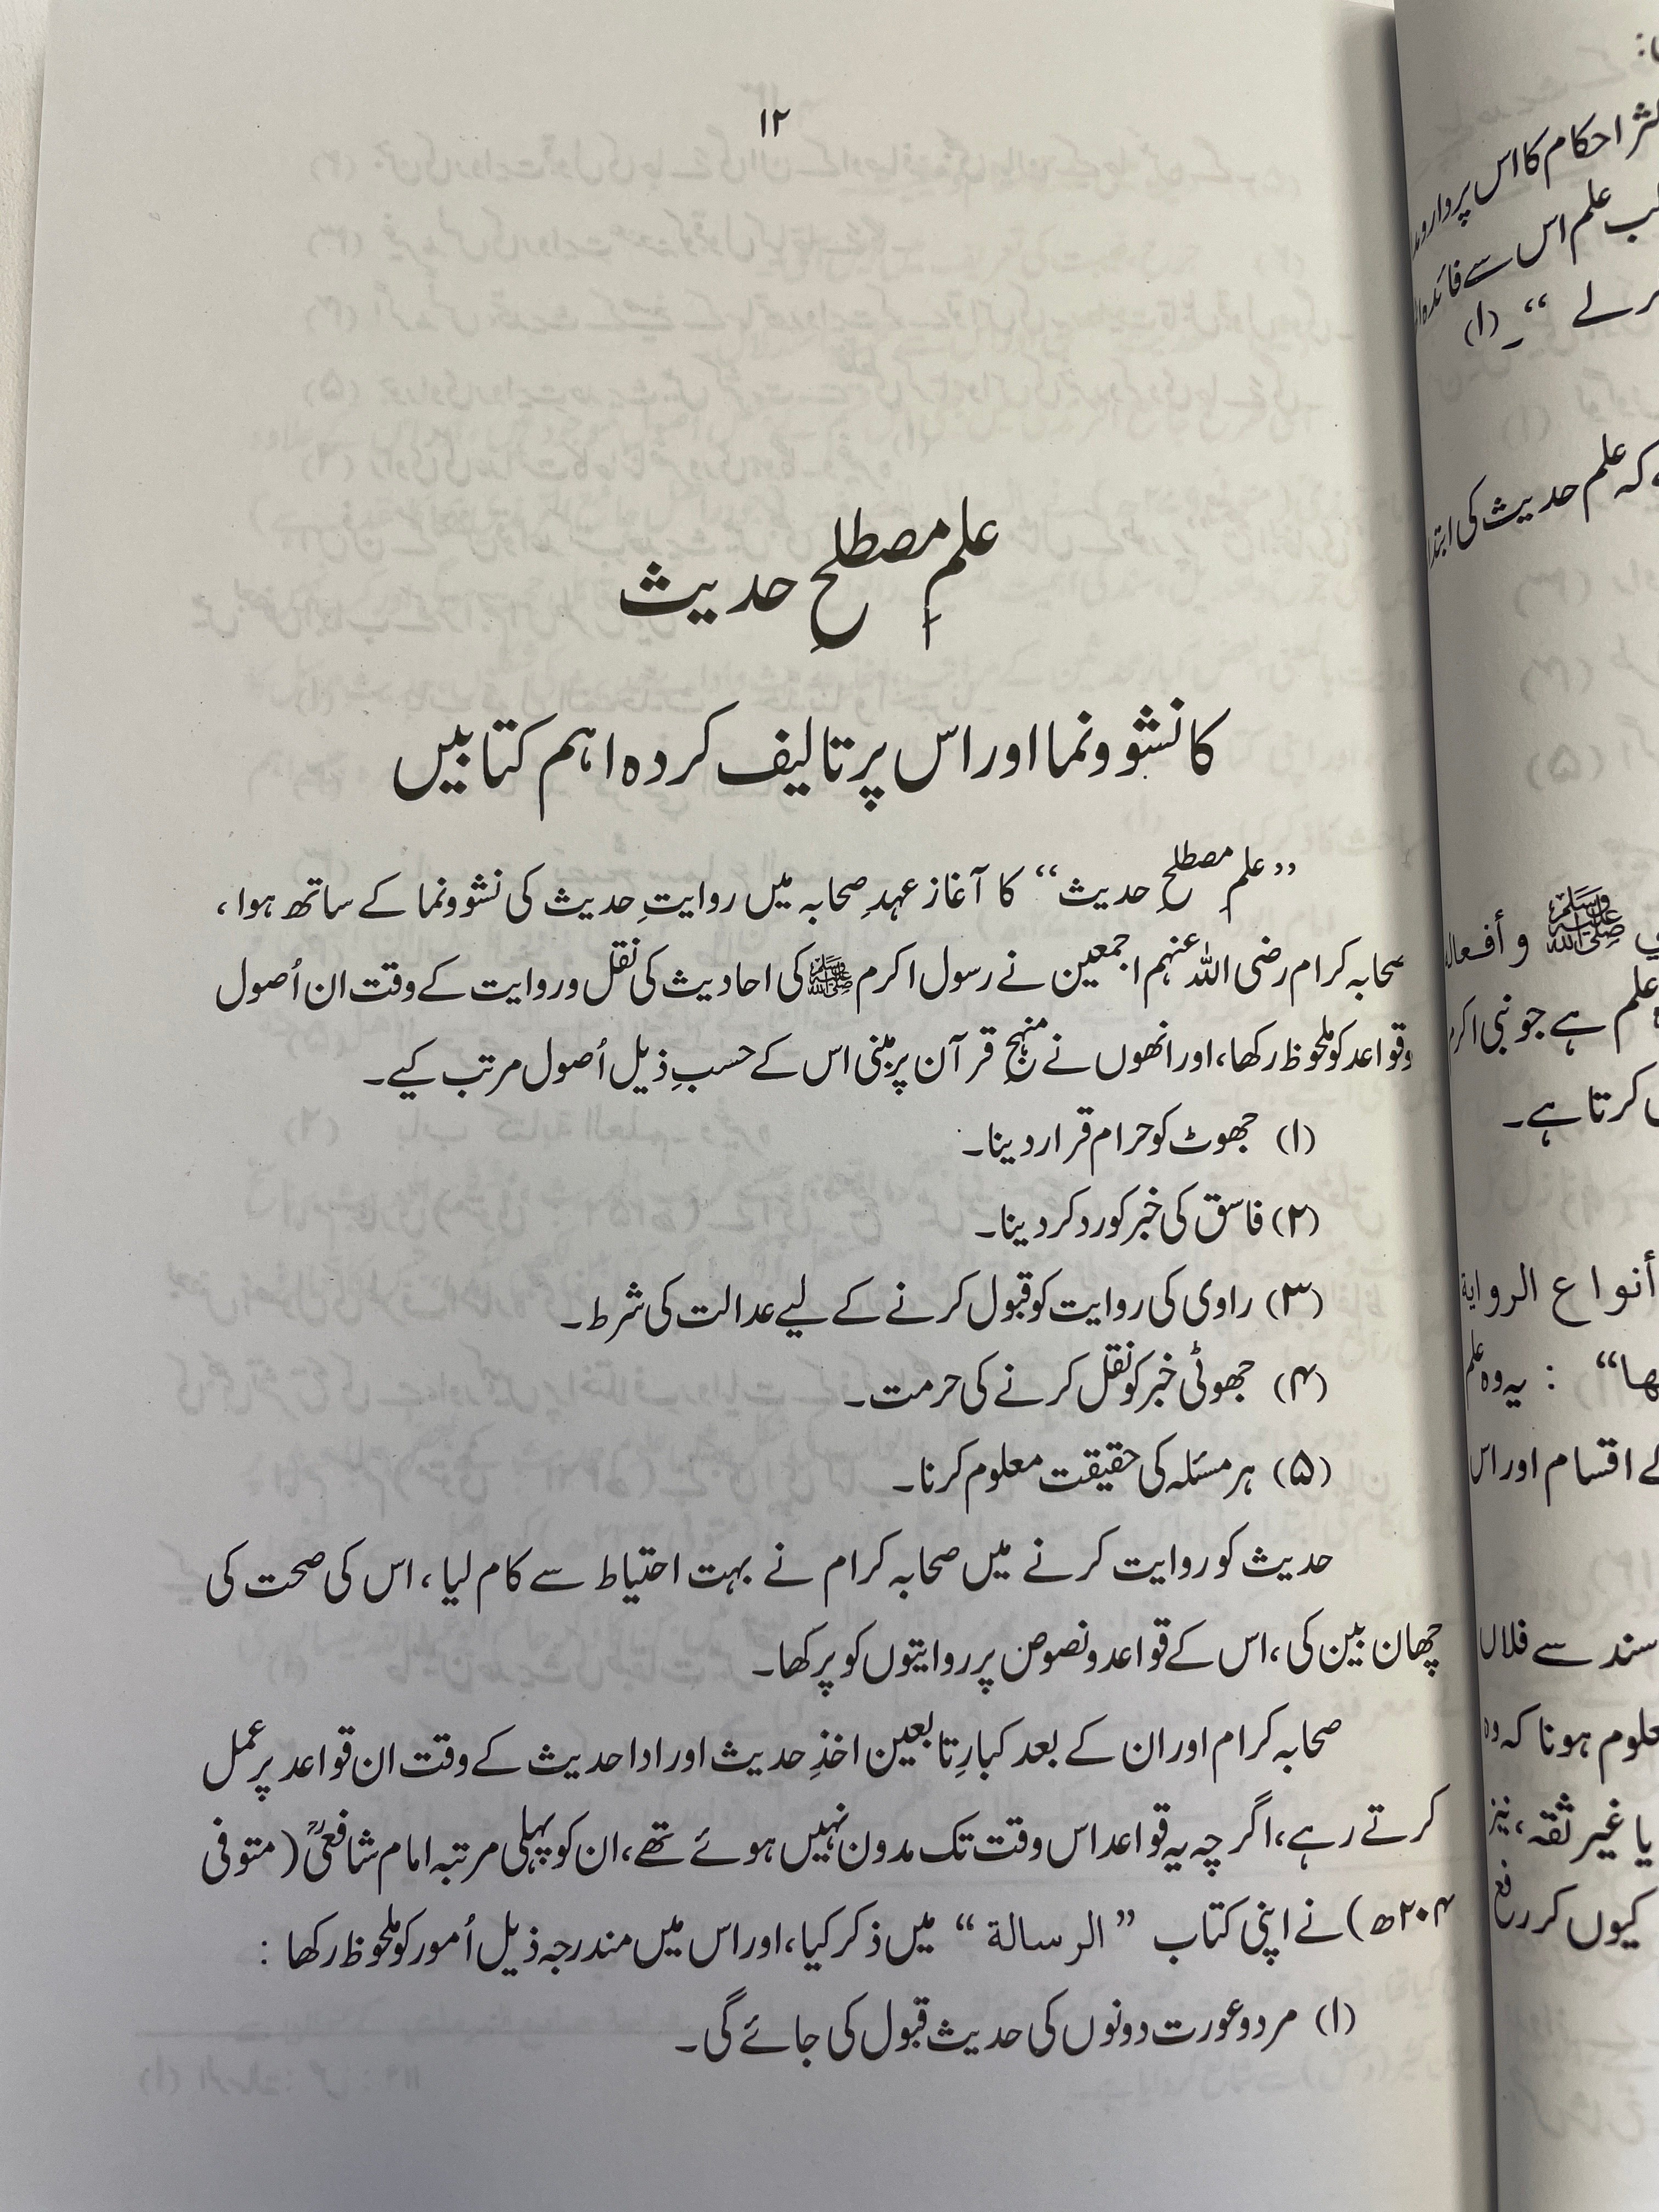 ۱۲
علمِ مصطلحِ حدیث
کا نشوونما اور اس پر تالیف کردہ اہم کتابیں
”علمِ مصطلحِ حدیث“ کا آغاز عہدِ صحابہ میں روایتِ حدیث کی نشوونما کے ساتھ ہوا،
صحابہ کرام رضی اللہ عنہم اجمعین نے رسول اکرم ﷺ کی احادیث کی نقل و روایت کے وقت ان اُصول
وقواعد کو ملحوظ رکھا، اور انھوں نے منہجِ قرآن پر مبنی اس کے حسبِ ذیل اُصول مرتب کیے۔
(۱) جھوٹ کو حرام قرار دینا۔
(۲) فاسق کی خبر کو رد کر دینا۔
(۳) راوی کی روایت کو قبول کرنے کے لیے عدالت کی شرط۔
(۴) جھوٹی خبر کو نقل کرنے کی حرمت۔
(۵) ہر مسئلہ کی حقیقت معلوم کرنا۔
حدیث کو روایت کرنے میں صحابہ کرام نے بہت احتیاط سے کام لیا، اس کی صحت کی
چھان بین کی، اس کے قواعد و نصوص پر روایتوں کو پرکھا۔
صحابہ کرام اور ان کے بعد کبارِ تابعین اخذِ حدیث اور ادا حدیث کے وقت ان قواعد پر عمل
کرتے رہے، اگر چہ یہ قواعد اس وقت تک مدون نہیں ہوئے تھے، ان کو پہلی مرتبہ امام شافعیؒ (متوفی
۲۰۴ھ) نے اپنی کتاب ”الرسالة“ میں ذکر کیا، اور اس میں مندرجہ ذیل اُمور کو ملحوظ رکھا :
(۱) مرد و عورت دونوں کی حدیث قبول کی جائے گی۔
احکام کا اس پر
علم اس سے
لے“۔(۱)
کہ علم حدیث کی
ﷺ و
علم ہے جو نبی
کرتا ہے۔
أنواع الرواية
: یہ وہ علم
اقسام اور اس
سند سے فلاں
ہونا کہ وہ
یا غیر ثقہ، نیز
کیوں کر